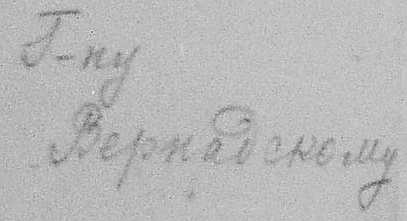 Г-ну
Вернадскому